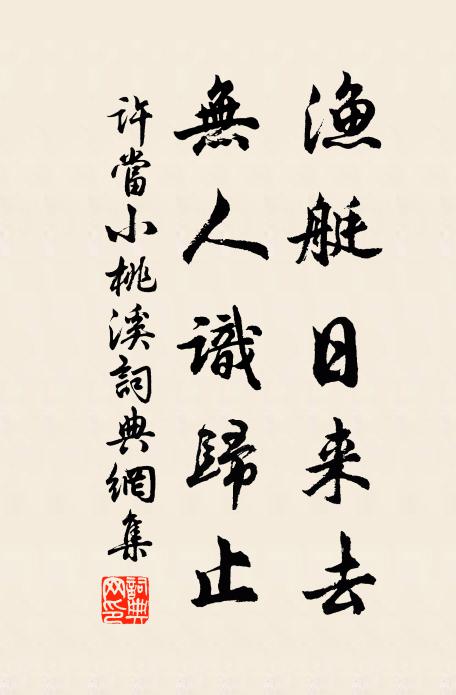 漁艇日来去
無人識歸止
許當小桃溪詞典網集
詞典网印